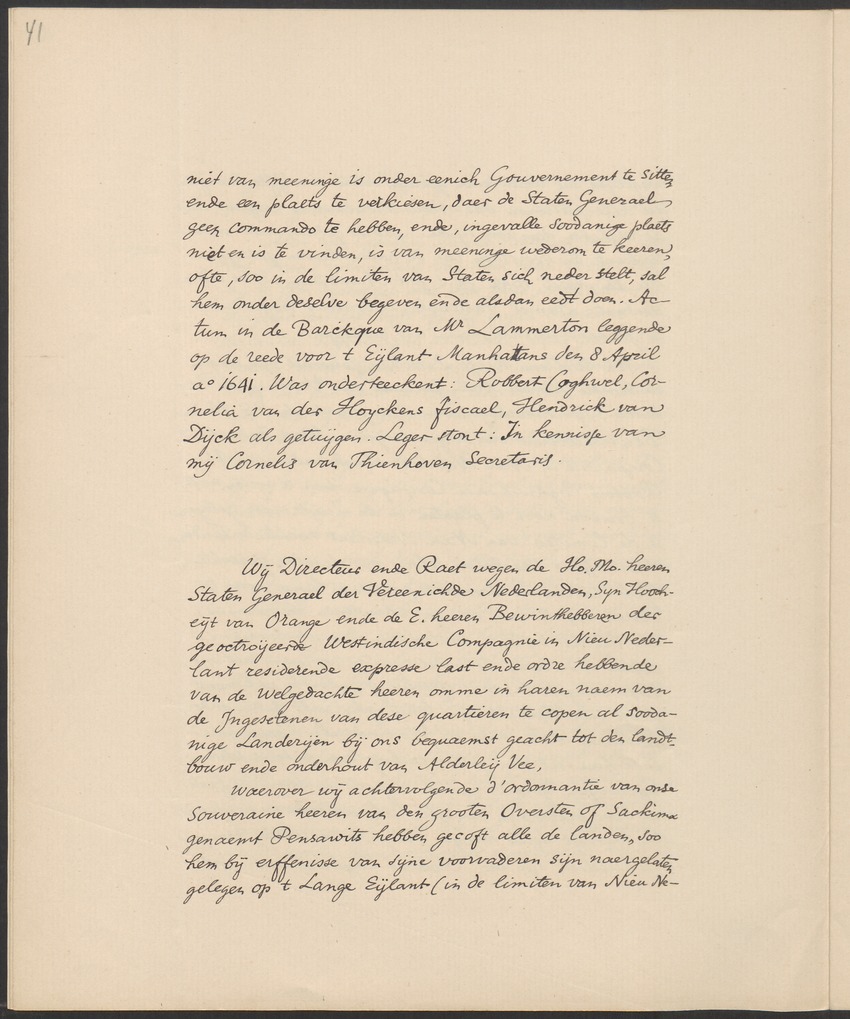 41
niet van meeninge is onder eenich Gouvernement te sitten,
ende een plaets te verkiesen, daer de Staten Generael
geen commando te hebben, ende, ingevalle soodanige plaets
niet en is te vinden, is van meeninge wederom te keeren,
ofte, soo in de limiten van Staten sich neder stelt, sal
hem onder deselve begeven ende alsdan eedt doen. Ac-
tum in de Barckque van Mr Lammerton leggende
op de reede voor t Eijlant Manhattans den 8 April
ao 1641. Was onderteeckent: Robbert Coghwel, Cor-
nelis van der Hoyckens fiscael, Hendrick van
Dijck als getuijgen. Leger stont: In kennisse van
mij Cornelis van Thienhoven Secretaris.
Wij Directeur ende Raet wegen de Ho. Mo. heeren
Staten Generael der Vereenichde Nederlanden, Syn Hooch-
eijt van Orange ende de E. heeren Bewinthebberen der
geoctroijeerde Westindische Compagnie in Nieu Neder-
lant residerende expresse last ende ordre hebbende
van de welgedachte heeren omme in haren naem van
de Ingesetenen van dese quartieren te copen al sooda-
nige Landerijen bij ons bequaemst geacht tot den landt-
bouw ende onderhout van Alderleij Vee,
waerover wij achtervolgende d'ordonnantie van onse
Souveraine heeren van den grooten Oversten of Sackima
genaemt Pensawits hebben gecoft alle de landen, soo
hem bij erffenisse van sijne voorvaderen sijn naergelaten
gelegen op t Lange Eijlant (in de limiten van Nieu Ne-